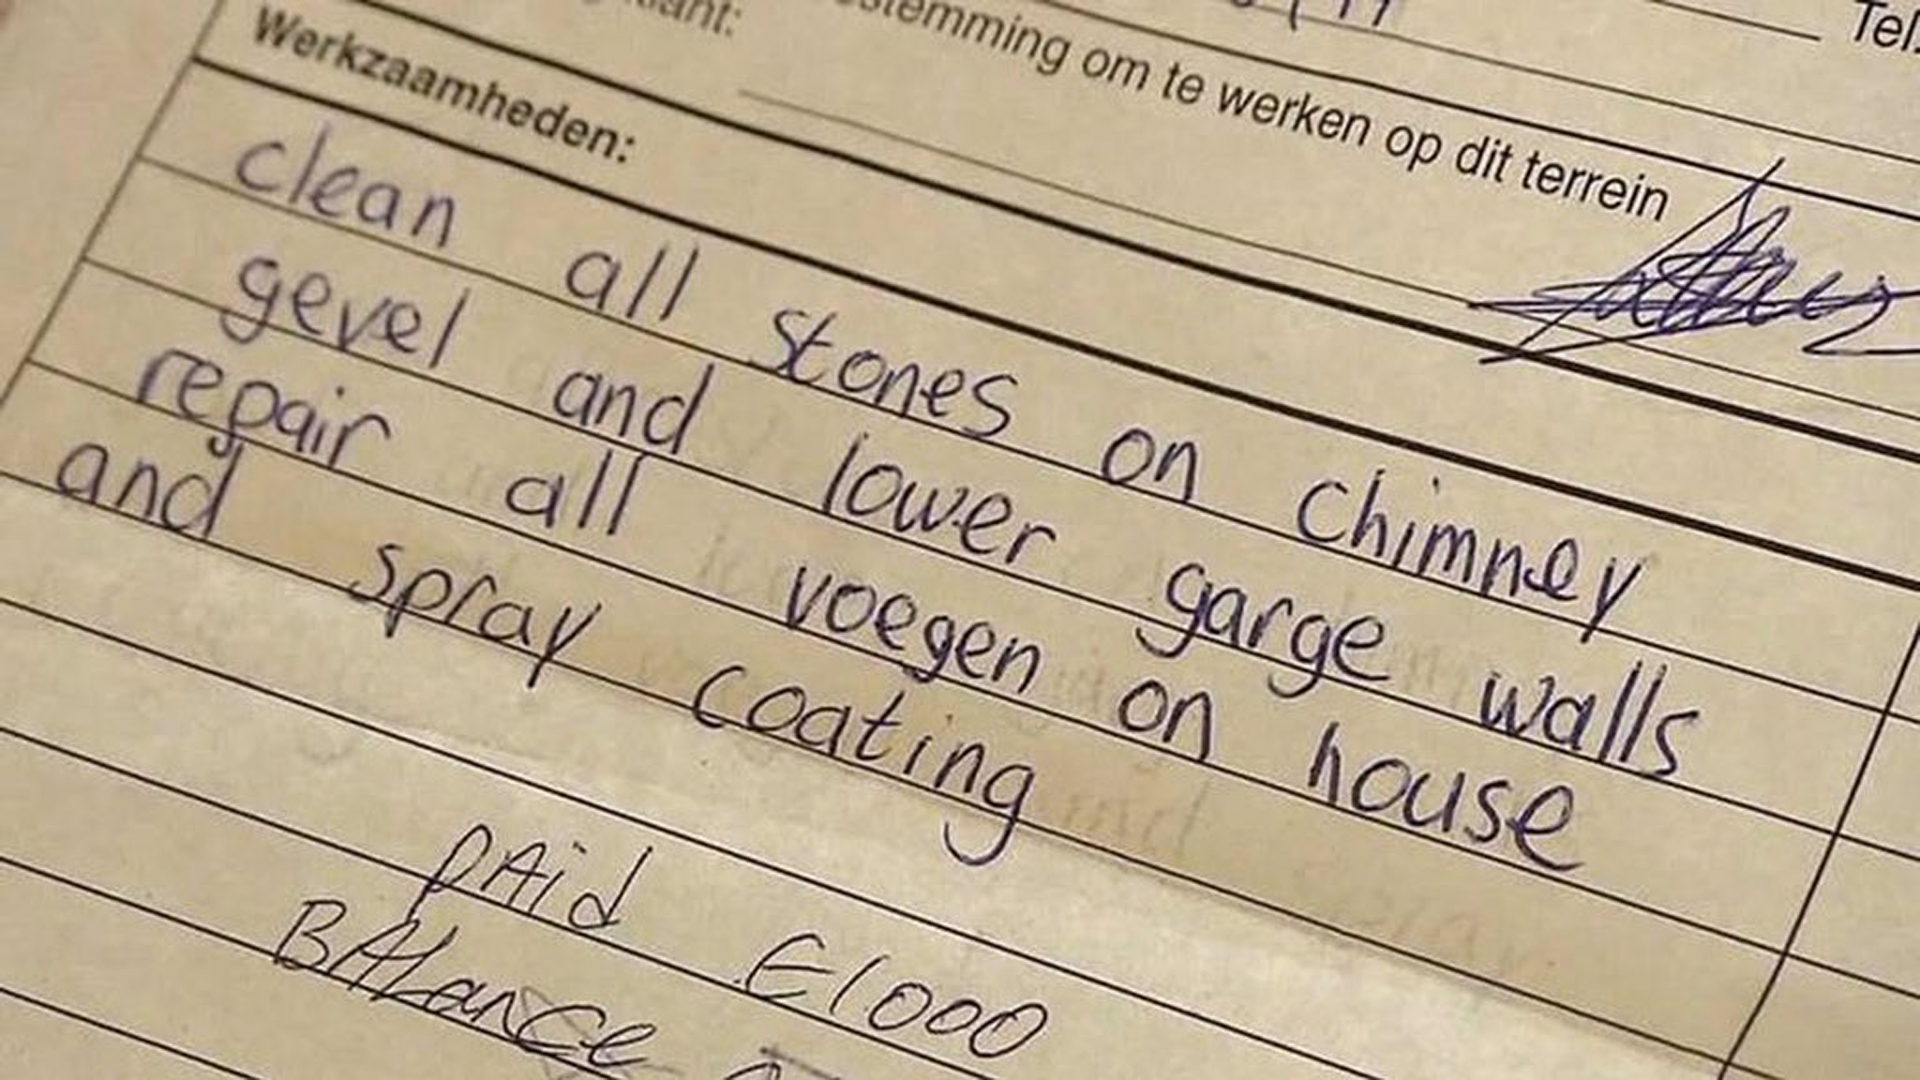 Tel.
stemming om te werken op dit terrein
Werkzaamheden:
clean all stones on chimney
gevel and lower garge walls
repair all voegen on house
and spray coating
PAid €1000
BALance